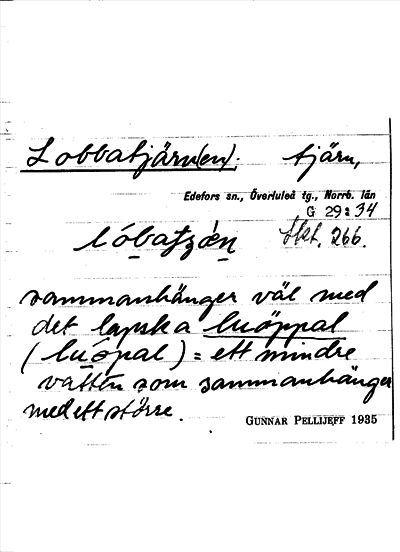 Lobbatjärn(en). tjärn,
Edefors sn., Överluleå tg., Norrb. län
G 29: 34
lóbatzén Ekt. 266.
sammanhänger väl med
det lapska luöppal
(luöpal) = ett mindre
vatten som sammanhänger
med ett större.
GUNNAR PELLIJEFF 1935